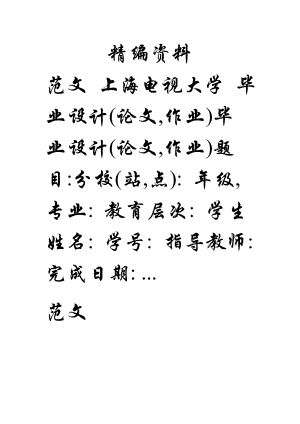 精编资料
范文 上海电视大学 毕
业设计(论文,作业)毕
业设计(论文,作业)题
目:分校(站,点): 年级,
专业: 教育层次: 学生
姓名: 学号: 指导教师:
完成日期: ...
范文